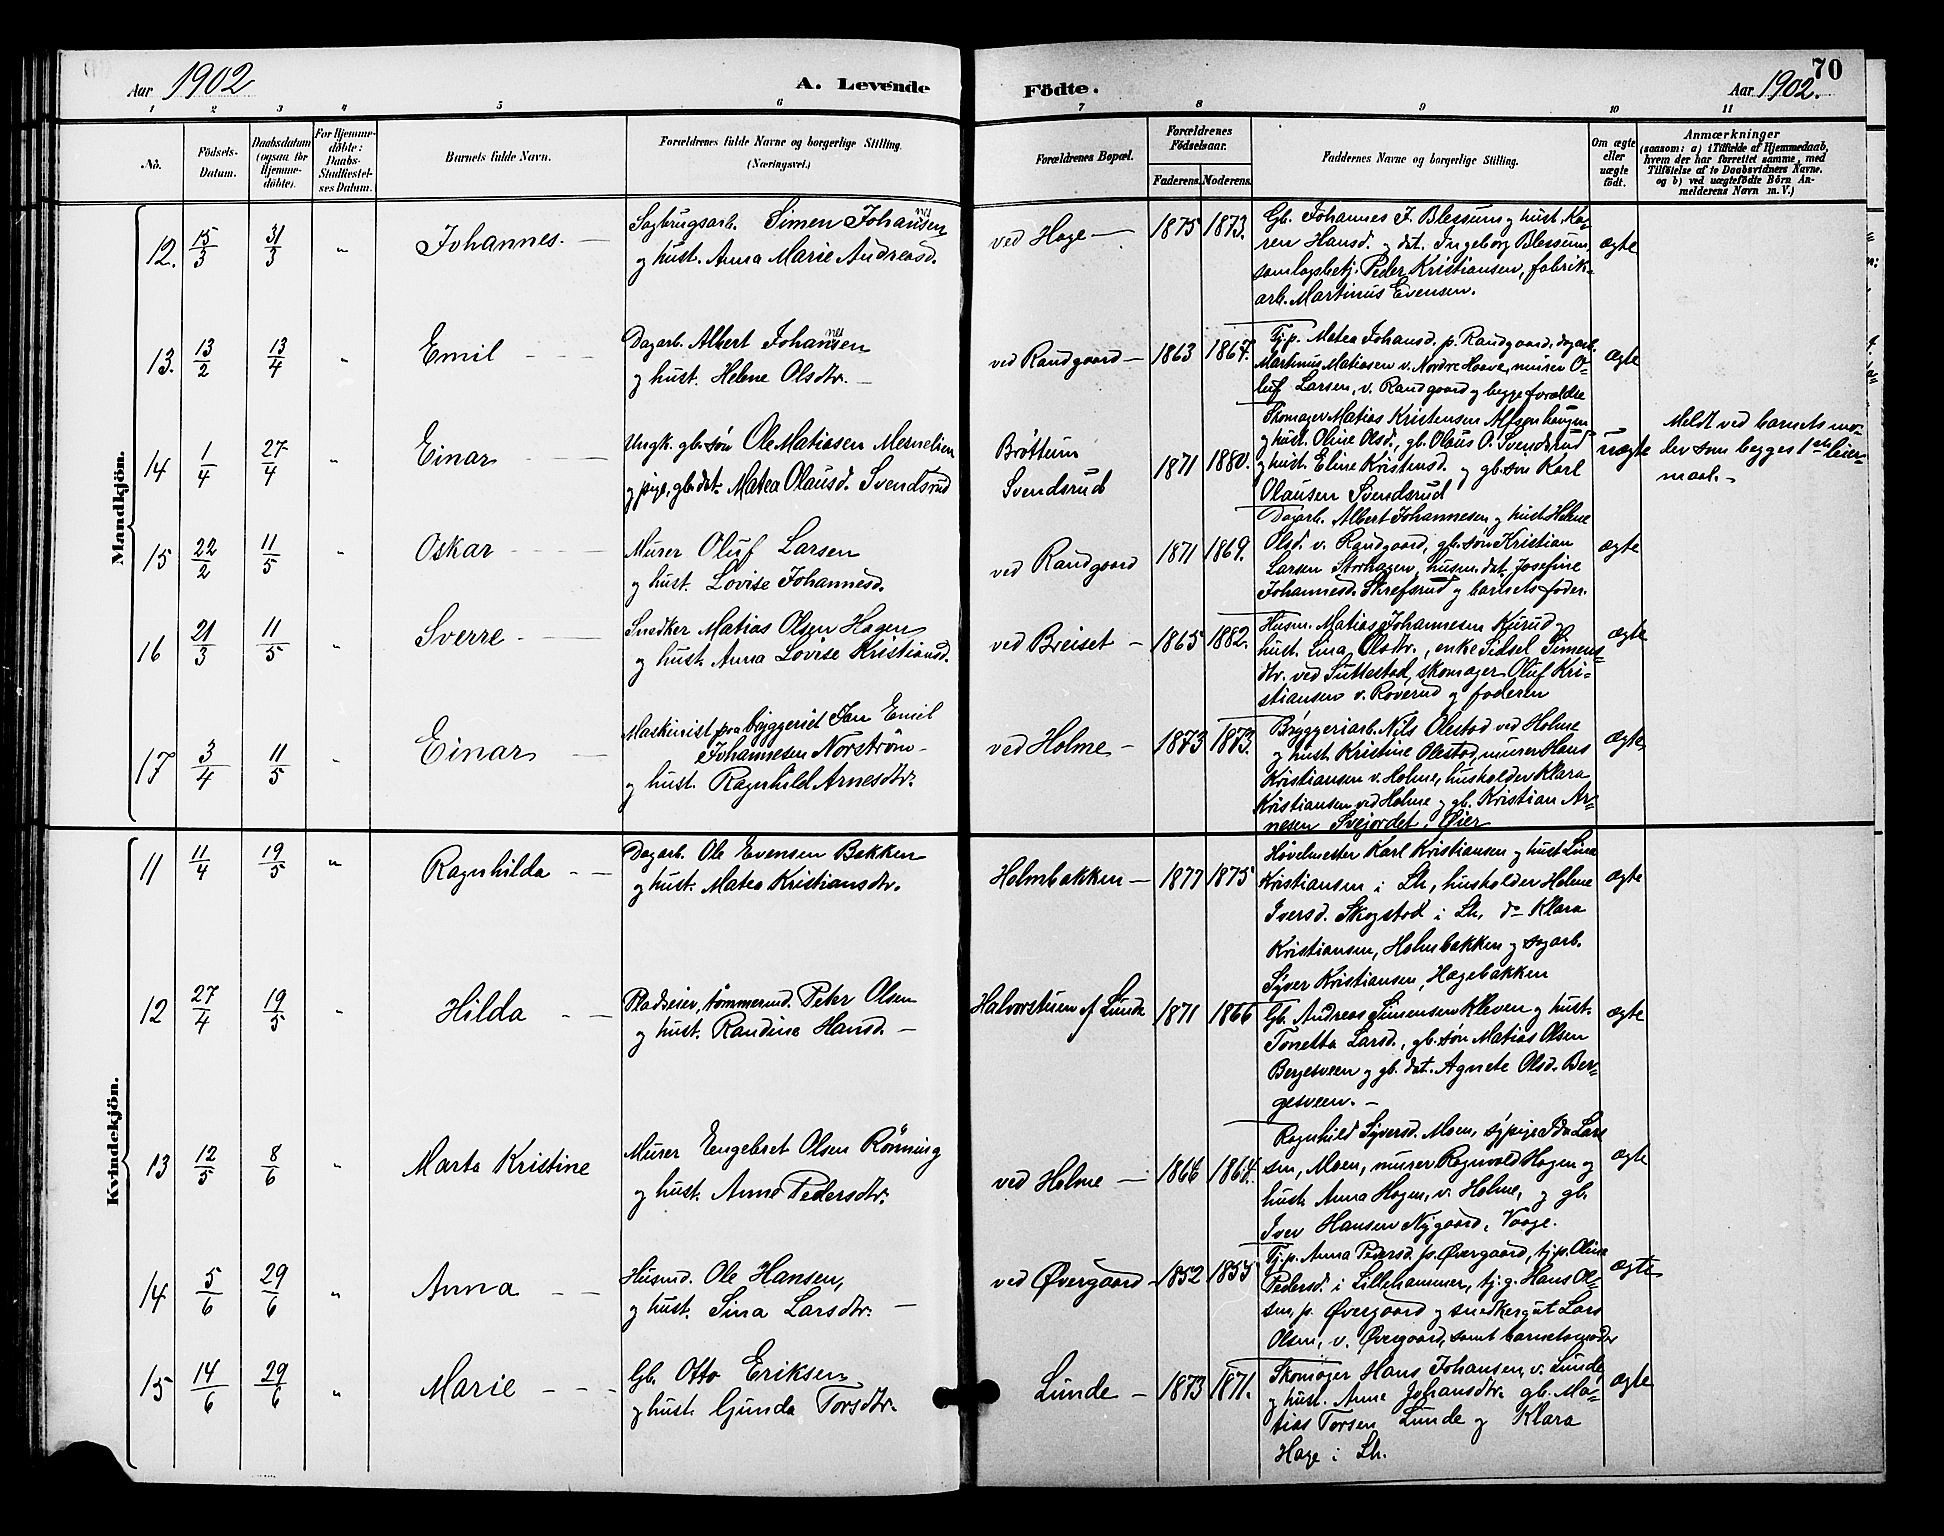 Aar 1902
A. Levende
Födte.
Aar 1902.
70
1 2 3 4 5 6 7 8 9 10 11
No.
Födsels-
Datum.
Daabsdatum
(ogsaa for
Hjemme-
döbte).
For Hjemme-
döbte:
Daabs-
Stadfæstel-
ses Datum.
Barnets fulde Navn.
Forældrenes fulde Navne og borgerlige Stilling.
(Næringsvei.)
Forældrenes Bopæl.
Forældrenes
Födselsaar.
Faderens. Moderens.
Faddernes Navne og borgerlige Stilling.
Om ægte
eller
uægte
födt.
Anmærkninger
(saasom: a) i Tilfælde af Hjemmedaab,
hvem der har forrettet samme, med
Tilföielse af to Daabsvidners Navne.
og b) ved uægtefödte Börn An-
melderens Navn m. V.)
Mandkjön.
12. 15/3 31/3 " Johannes. —
Sagbrugsarb. Simen Johannesen
og hust. Anna Marie Andreasd.
ved Hage — 1875 1873.
Gb. Johannes J. Blessum og hust. Ka-
ren Hansd. og dat. Ingeborg Blessum,
samlagsbetj. Peder Kristiansen, fabrik-
arb. Martinus Evensen.
ægte
13. 13/2 13/4 " Emil — —
Dagarb. Albert Johannesen
og hust. Helene Olsdtr. —
ved Randgaard — 1863 1867.
Tj.p. Matea Johansd. p. Randgaard, dagarb.
Martinus Matiasen v. Nordre Haave, murer O-
luf Larsen, v. Randgaard og begge forældre
ægte
14 1/4 27/4 " Einar — —
Ungk. gb.søn Ole Matiasen
og pige, gb.dat. Matea Olausd. Svendsrud
Bröttum
Svendsrud
1871 1880.
Skomager Matias Kristensen
og hust. Oline Olsd., gb. Olaus O. Svendsrud
og hust. Eline Kristensd. og gb.søn Karl
Olausen Svendsrud
uægte
Meldt ved barnets mo-
der som begges 1ste leier-
maal. —
15 22/2 11/5 " Oskar — —
Murer Oluf Larsen
og hust. Lovise Johannesd.
ved Randgaard 1871 1869.
Dagarb. Albert Johannesen og hust. Helene
Olsd. v. Randgaard, gb.søn Kristian
Larsen Storhagen, husm.dat. Josefine
Johannesd. Skrefsrud og barnets fader.
ægte
16 21/3 11/5 " Sverre — —
Snedker Matias Olsen Hagen
og hust. Anna Lovise Kristiansd.
ved Breiset — 1865 1882.
Husm. Matias Johannesen Kurud og
hust. Lina Olsdtr., enke Sidsel Simens-
dtr. ved Suttestad, skomager Oluf Kri-
stiansen v. Roverud og faderen
ægte
17 3/4 11/5 " Einar —
Maskinist paa bryggeriet Jan Emil
Johannesen Norström —
og hust. Ragnhild Arnesdtr.
ved Holme — 1873 1873.
Bryggeriarb. Nils Olestad ved Holme
og hust. Kristine Olestad, murer Hans
Kristiansen v. Holme, husholder Klara
Kristiansen ved Holme og gb. Kristian Ar-
nesen Svejordet, Øier
ægte
Kvindekjön.
11 11/4 19/5 " Ragnhilda — —
Dagarb. Ole Evensen Bakken
og hust. Matea Kristiansdtr.
Holmbakken — 1877 1875
Høvelmester Karl Kristiansen og hust. Lina
Kristiansen i Lh., husholder Helene
Iversd. Skogstad i Lh, do Klara
Kristiansen, Holmbakken og sagarb.
Syver Kristiansen, Hagebakken
ægte
12 27/4 19/5 " Hilda — —
Pladseier, tömmermd. Peter Olsen
og hust. Randine Hansd. —
Halvorstuen af Lunde 1871 1866
Gb. Andreas Simensen Kleven og hust.
Tonetta Larsd., gb.søn Matias Olsen
Bergesveen og gb. dat. Agnete Olsd. Ber-
gesveen. —
ægte
13 12/5 8/6 " Marta Kristine
Murer Engebret Olsen Rönning
og hust. Anne Pedersdtr.
ved Holme — 1866 1864.
Ragnhild Syversd. Moen, sypige Ida Lar-
sen, Moen, murer Ragnvald Hagen og
hust. Anna Hagen, v. Holme, og gb.
Iver Hansen Nygaard, Vaage.
ægte
14 5/6 29/6 " Anna — —
Husmd. Ole Hansen,
og hust. Sina Larsdtr. —
ved Øvergaard — 1852 1855
Tj.p. Anna Pedersd. p. Øvergaard, tj.p. Oline
Pedersd. i Lillehammer, tj.g. Hans Ol-
sen, p. Øvergaard og snedkergut Lars
Olsen, v. Øvergaard, samt barnets moder
ægte
15 14/6 29/6 " Marie — — —
Gb. Otto Eriksen
og hust. Gunda Torsdtr.
Lunde — 1873 1871.
Skomager Hans Johansen, v. Lunde,
og hust. Anne Johansdtr. gb. Ma-
tias Torsen Lunde og Klara
Hage i Lh.
ægte